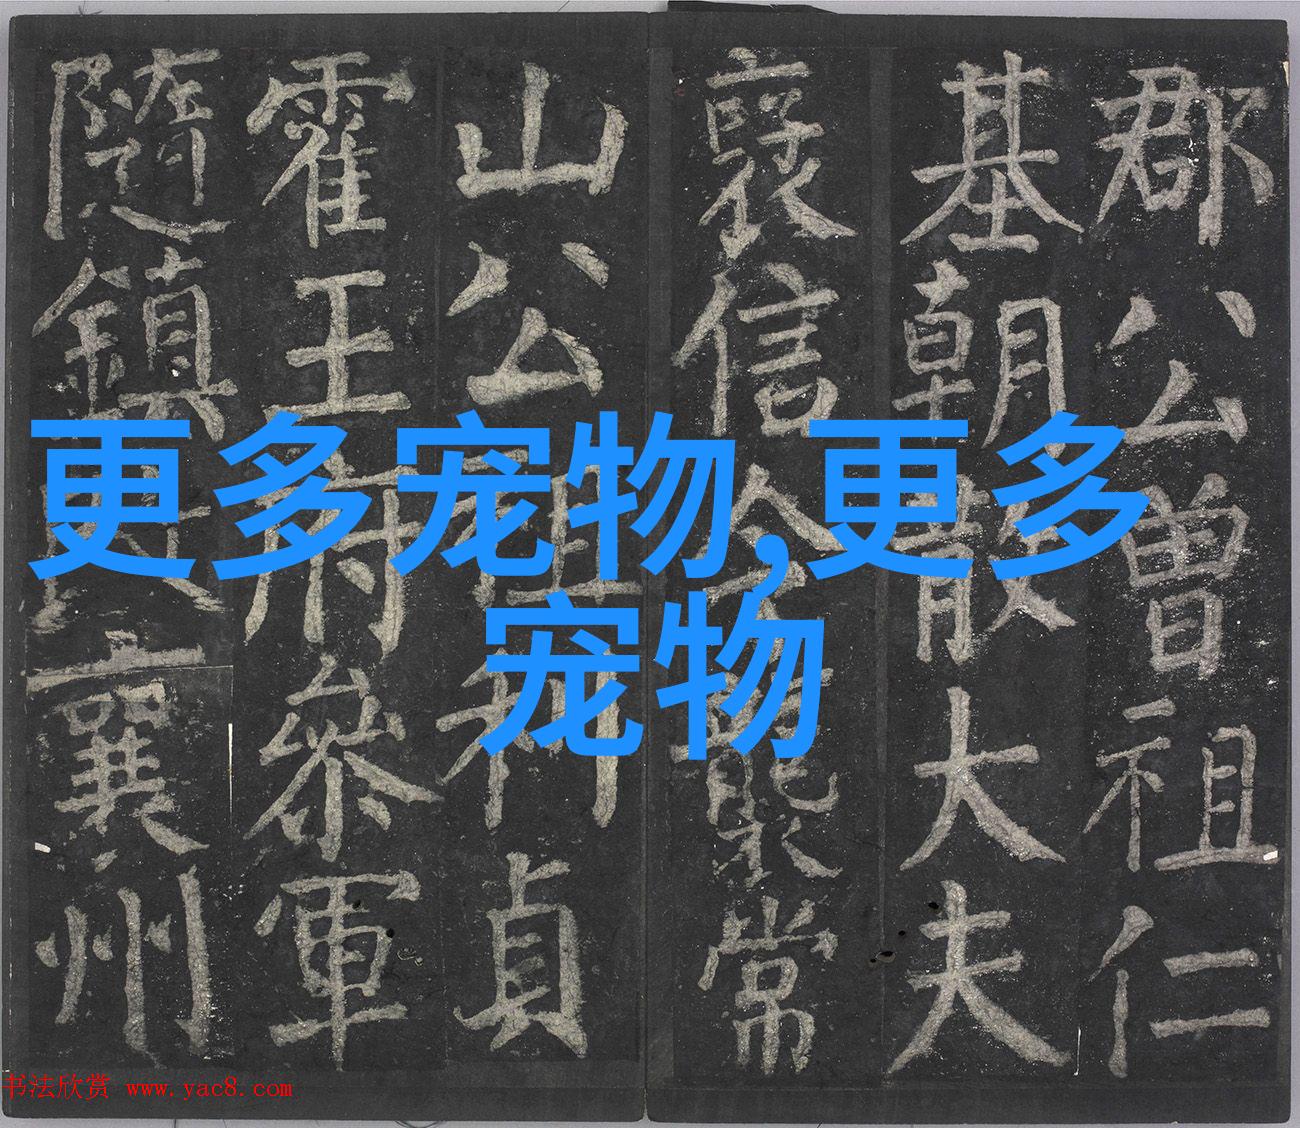 郡公公曾祖仁
基朝散大夫
襃信令襲常
山公祖利貞
霍王府參軍
隨鎮襄州
更多宠物,更多
宠物
书法欣赏 www.yac8.com